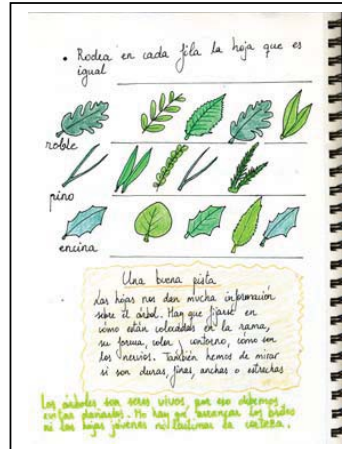 • Rodea en cada fila la hoja que es
igual
roble
pino
encina
Una buena pista
Las hojas nos dan mucha información
sobre el árbol. Hay que fijarse en
cómo están colocadas en la rama,
su forma, color y contorno, cómo son
los nervios. También hemos de mirar
si son duras, finas, anchas o estrechas
Los árboles son seres vivos, por eso debemos
evitar dañarlos. No hay que arrancar los brotes
ni las hojas jóvenes ni lastimar la corteza.